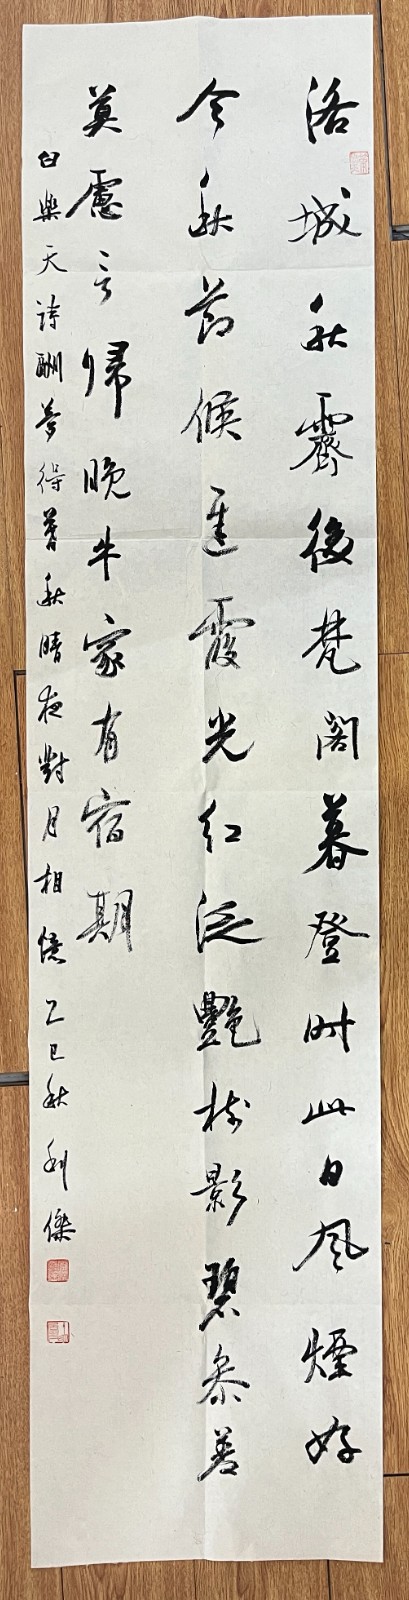 洛城秋霽後梵閣暮登時此日風煙好
今秋節候遲霞光紅泛艷樹影碧參差
莫慮言歸晚牛家有宿期
白樂天詩酬夢得暮秋晴夜對月相憶乙巳秋利傑